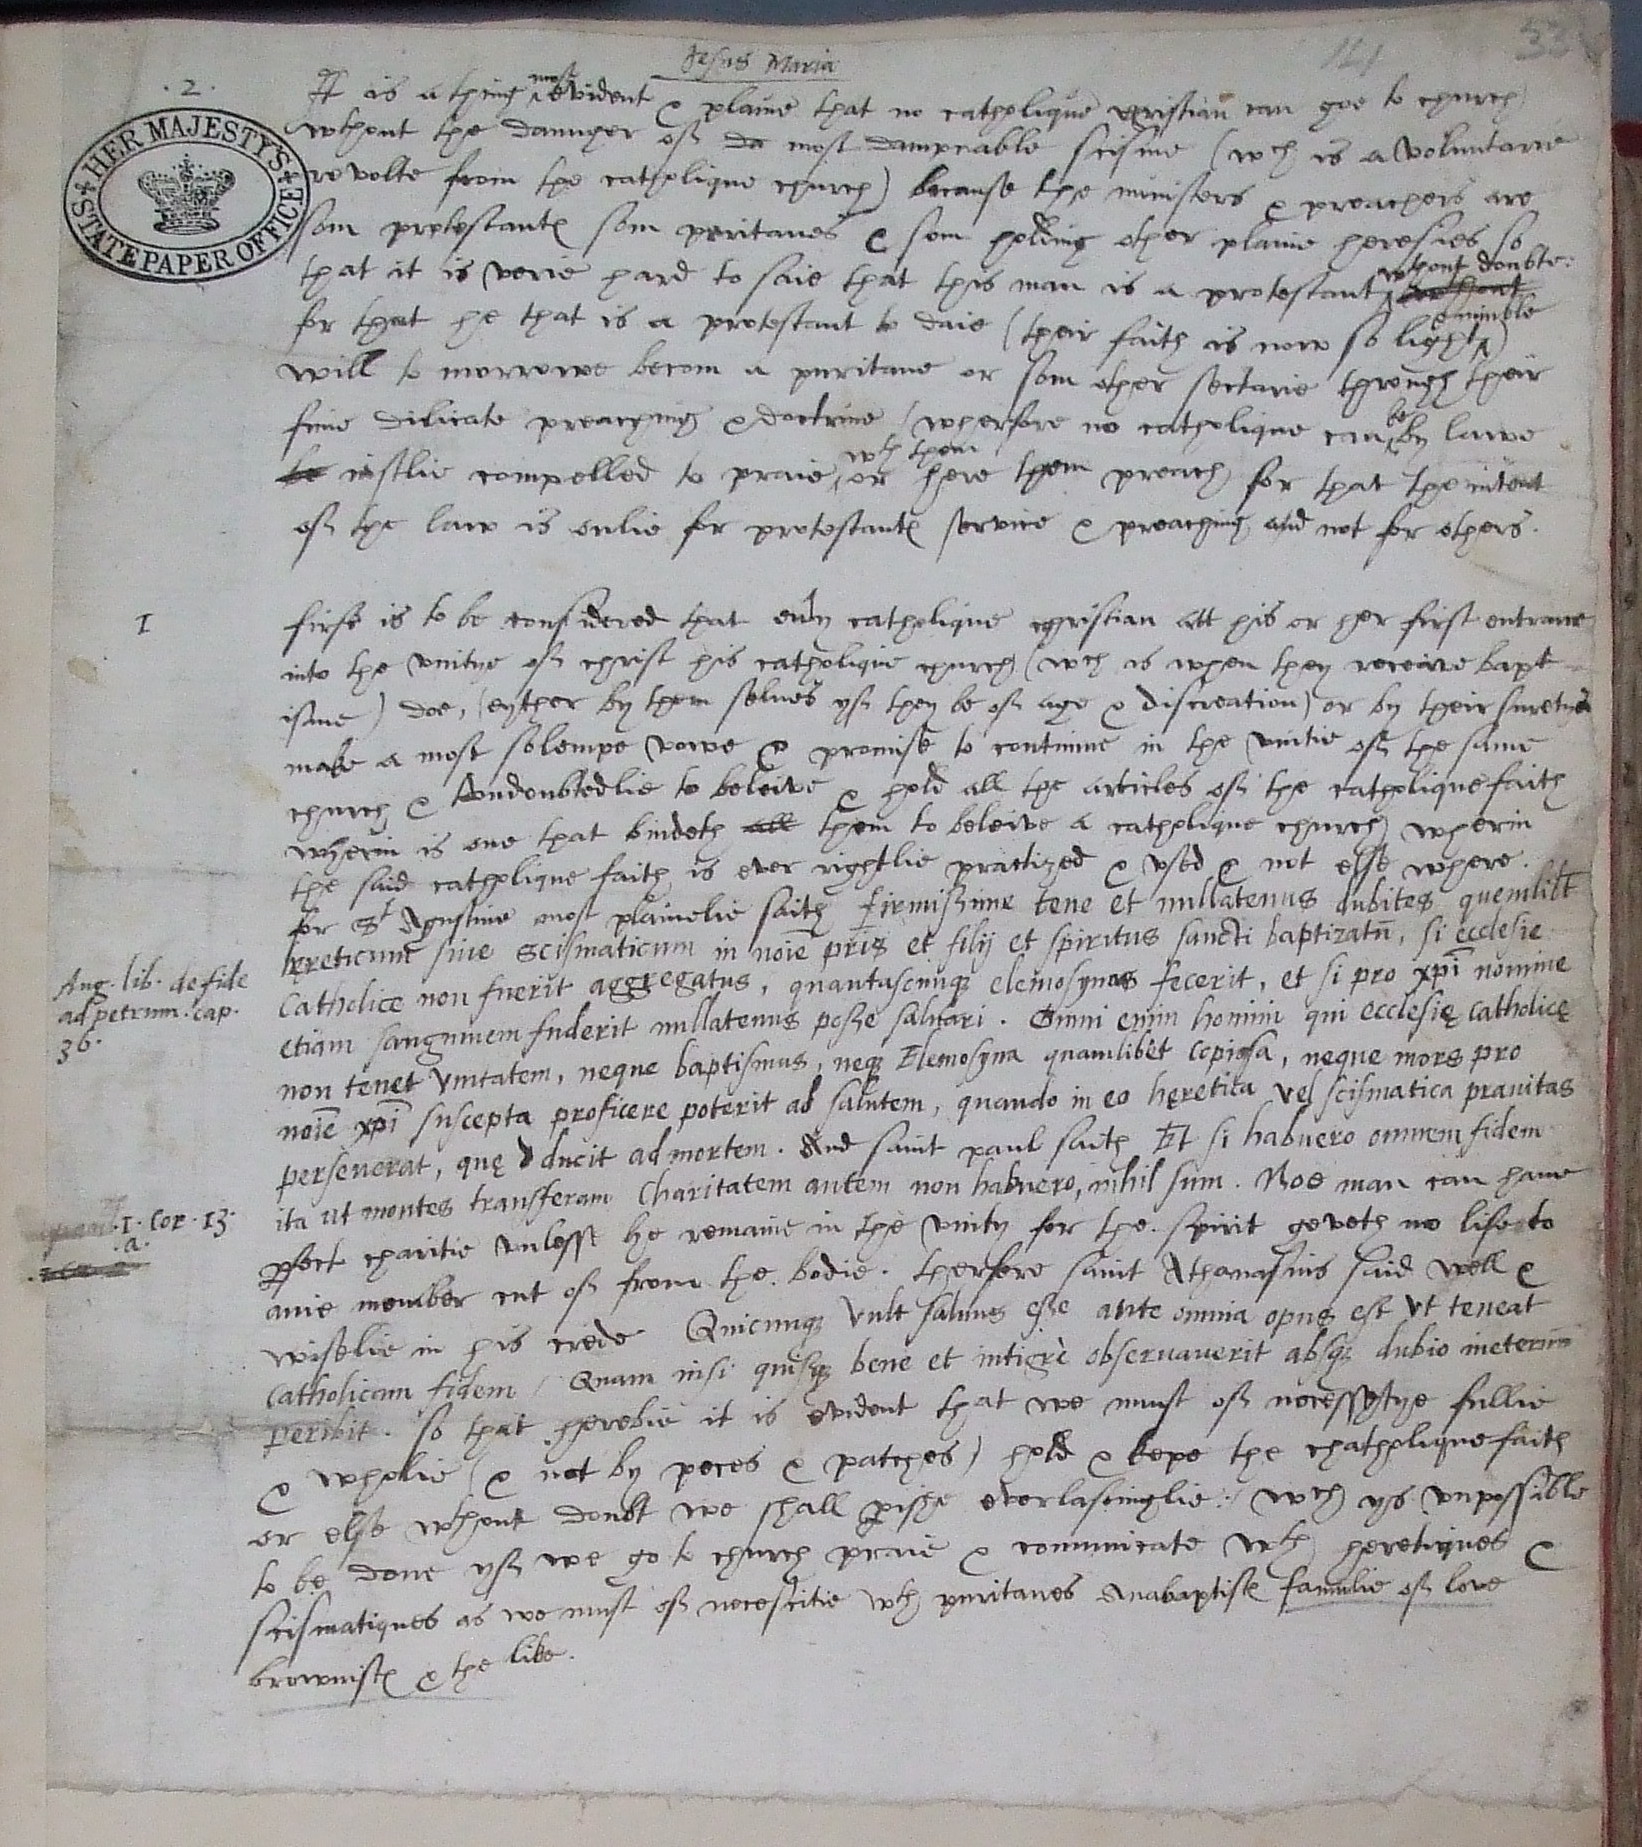 Jesus Maria
164
33
.2.
HER MAJESTY'S
STATE PAPER OFFICE
It is a thing most evident & plaine that no catholique christian can goe to church
wthout the daunger of da most dampnable scisme (wch is a voluntarie
revolte from the catholique church) because the ministers & preachers are
som protestantes som puritanes & som holding other plaine heresies so
that it is verie hard to saie that this man is a protestant wthout doubte:
for that he that is a protestant to daie (their faith is now so light & nimble)
will to morrowe becom a puritane or som other sectarie through their
fine dilicate preaching & doctrine / wherfore no catholique can be by lawe
be iustlie compelled to praie wth them or here them preach for that the intent
of the law is onlie for protestantes service & preaching and not for others.
1
first is to be considered that eu'y catholique christian att his or her first entrance
into the vnitye of christ his catholique church (wch is when they receive bapt=
isme) doe, (eyther by them selues yf they be of age & discreation) or by their suretyes
make a most solempe vowe & promise to continue in the vnitie of the same
church & vndoubtedlie to beleive & hold all the articles of the catholique faith
wherin is one that bindeth all them to beleive a catholique church) wherin
the said catholique faith is ever rightlie practized & vsed & not else where.
for St Agustine most plainelie saith firmissime tene et nullatenus dubites quemlibt
hereticum siue scismaticum in noīe pris et filij et spiritus sancti baptizatū, si ecclesie
Aug. lib. de fide
ad petrum. cap.
36.
Catholice non fuerit aggregatus, quantascunqz elemosynas fecerit, et si pro xpī nomine
etiam sanguinem fuderit nullatenus posse saluari. Omni enim homini qui ecclesię catholicę
non tenet vnitatem, neque baptismus, neqz Elemosyna quamlibet copiosa, neque mors pro
noīe xpī suscepta proficere poterit ad salutem, quando in eo hęretica vel scismatica prauitas
perseuerat, quę ducit ad mortem. And saint paul saith Et si habuero omnem fidem
1. Cor. 13.
a.
ita ut montes transferam Charitatem autem non habuero, nihil sum. Noe man can haue
pfect charitie vnlesse he remaine in the vnity for the spirit geveth no life to
anie member cut of from the bodie. therfore saint Athanasius said well &
wiselie in his crede Quicunqz vult saluus esse ante omnia opus est vt teneat
Catholicam fidem / Quam nisi quisqz bene et intigrè obseruauerit absqz dubio ineternū
peribit. so that herebie it is evident that we must of necessytye fullie
& wholie (& not by peces & patches) hold & kepe the chatholique faith
or else wthout doubt we shall pishe everlastinglie: / wch ys vnpossible
to be done yf we go to church praie & comunicate wth heretiques &
scismatiques as we must of necescitie wth puritanes Anabaptistes familie of love
brownistes & the like.